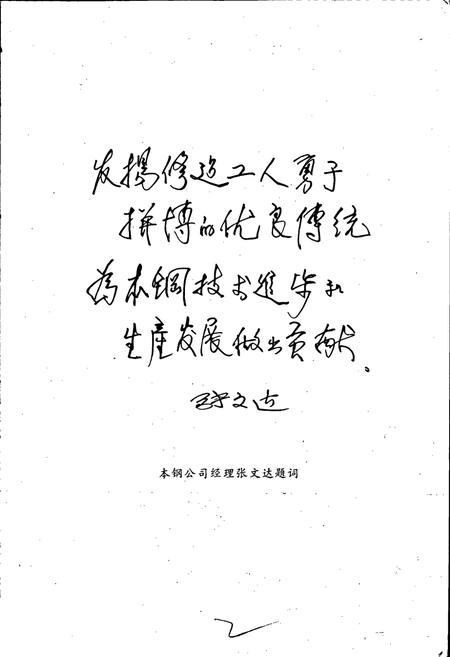 发揚修造工人勇于
拼博的优良傳统
為本鋼技术進步和
生產发展做出贡献。
张文达
本钢公司经理张文达题词
2